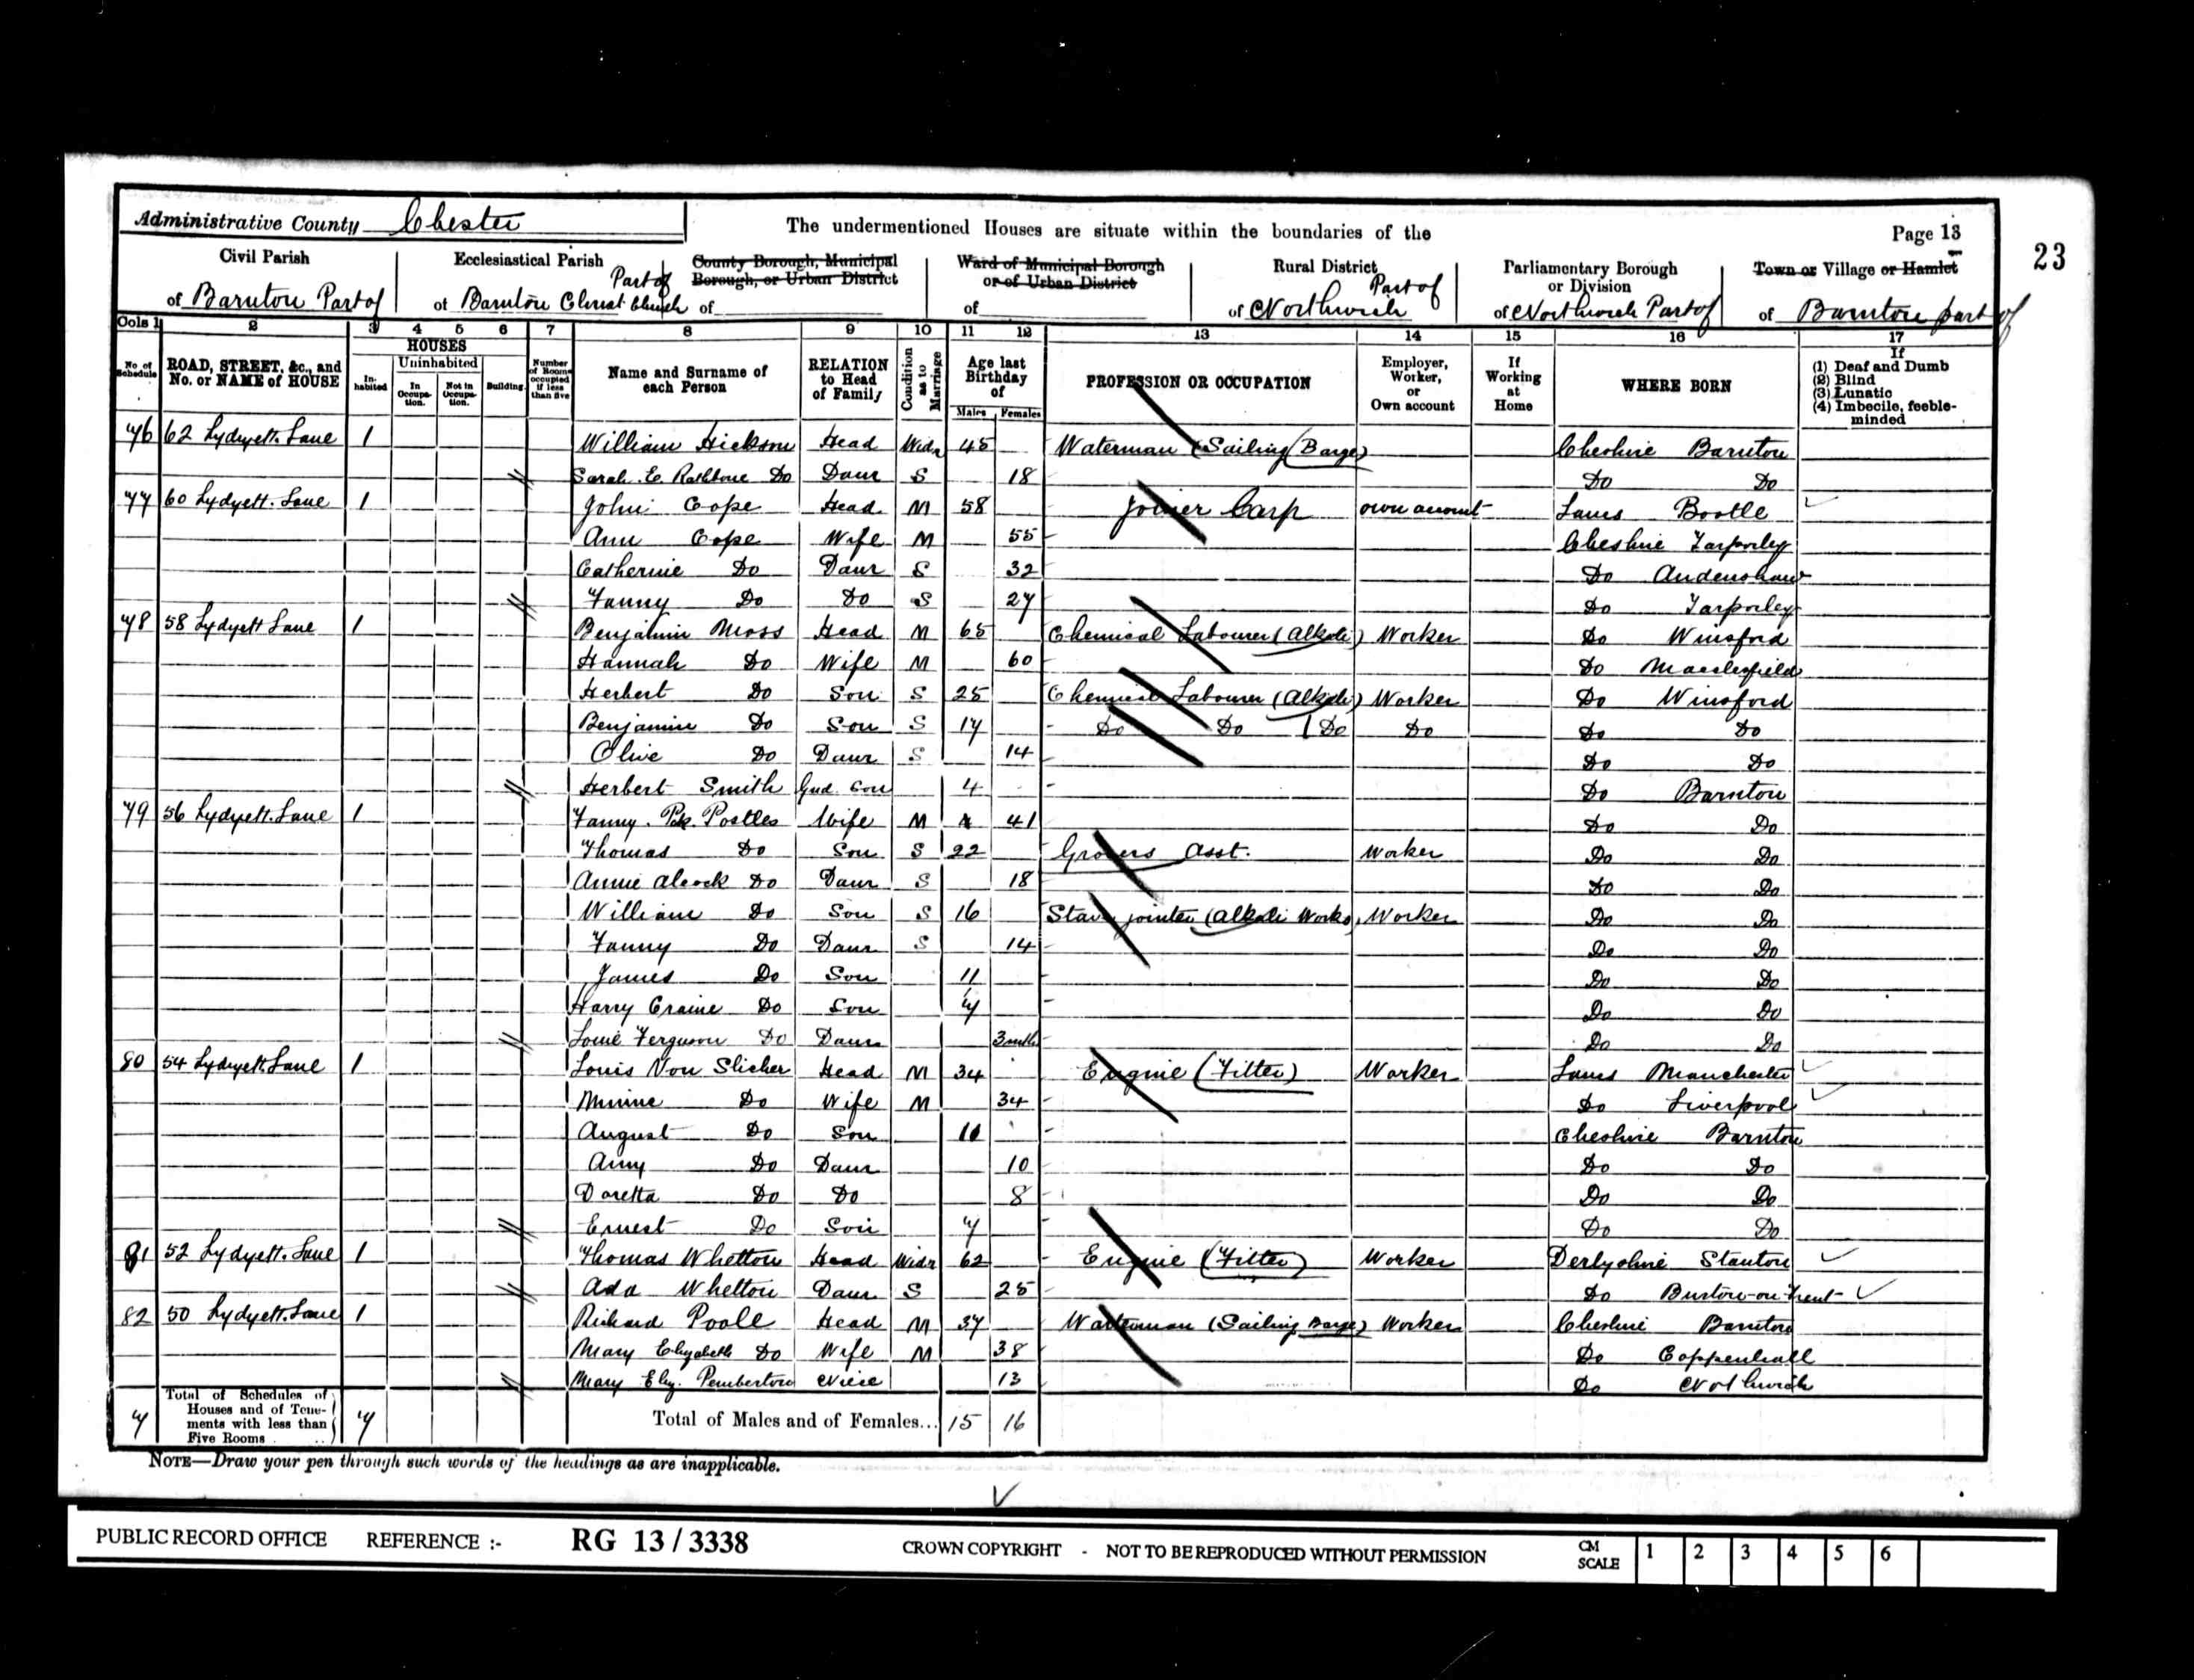 Administrative County Chester
The undermentioned Houses are situate within the boundaries of the
Page 13
23
Civil Parish of Barnton Part of
Ecclesiastical Parish of Barnton Christ Church Part of
County Borough, Municipal Borough, or Urban District of
Ward of Municipal Borough or of Urban District of
Rural District of Northwich Part of
Parliamentary Borough or Division of Northwich Part of
Town or Village or Hamlet of Barnton part of
Cols 1 2 3 4 5 6 7 8 9 10 11 12 13 14 15 16 17
No of Schedule
ROAD, STREET, &c., and No. or NAME of HOUSE
HOUSES
Inhabited
Uninhabited
In Occupation.
Not in Occupation.
Building.
Number of Rooms occupied if less than five
Name and Surname of each Person
RELATION to Head of Family
Condition as to Marriage
Age last Birthday of
Males Females
PROFESSION OR OCCUPATION
Employer, Worker, or Own account
If Working at Home
WHERE BORN
If (1) Deaf and Dumb (2) Blind (3) Lunatic (4) Imbecile, feeble-minded
76 62 Lydyett Lane 1 William Hickson Head Widr 45 Waterman (Sailing (Barge) Cheshire Barnton
Sarah E. Rathbone Do Daur S 18 Do Do
77 60 Lydyett Lane 1 John Cope Head M 58 Joiner Carp own account Lancs Bootle
Ann Cope Wife M 55 Cheshire Tarporley
Catherine Do Daur S 32 Do Audenshaw
Fanny Do Do S 27 Do Tarporley
78 58 Lydyett Lane 1 Benjamin Moss Head M 65 Chemical Labourer (Alkali) Worker Do Winsford
Hannah Do Wife M 60 Do Macclesfield
Herbert Do Son S 25 Chemical Labourer (Alkali) Worker Do Winsford
Benjamin Do Son S 17 Do Do (Do Do Do Do
Olive Do Daur S 14 Do Do
Herbert Smith Gnd. Son 4 Do Barnton
79 56 Lydyett Lane 1 Fanny Postles Wife M 41 Do Do
Thomas Do Son S 22 Grocers Asst. Worker Do Do
Annie Alcock Do Daur S 18 Do Do
William Do Son S 16 Stave jointer (Alkali Works) Worker Do Do
Fanny Do Daur S 14 Do Do
James Do Son 11 Do Do
Harry Craine Do Son 7 Do Do
Louie Ferguson Do Daur 3 mths Do Do
80 54 Lydyett Lane 1 Louis Von Slicher Head M 34 Engine (Fitter) Worker Lancs Manchester
Minnie Do Wife M 34 Do Liverpool
August Do Son 11 Cheshire Barnton
Amy Do Daur 10 Do Do
Doretta Do Do 8 Do Do
Ernest Do Son 7 Do Do
81 52 Lydyett Lane 1 Thomas Whetton Head Widr 62 Engine (Fitter) Worker Derbyshire Stanton
Ada Whetton Daur S 25 Do Burton-on-Trent
82 50 Lydyett Lane 1 Richard Poole Head M 37 Waterman (Sailing Barge) Worker Cheshire Barnton
Mary Elizabeth Do Wife M 38 Do Coppenhall
Mary Eliz. Pemberton Niece 13 Do Northwich
7 Total of Schedules of Houses and of Tenements with less than Five Rooms 7 Total of Males and of Females... 15 16
NOTE—Draw your pen through such words of the headings as are inapplicable.
PUBLIC RECORD OFFICE REFERENCE :- RG 13 / 3338 CROWN COPYRIGHT - NOT TO BE REPRODUCED WITHOUT PERMISSION CM SCALE 1 2 3 4 5 6